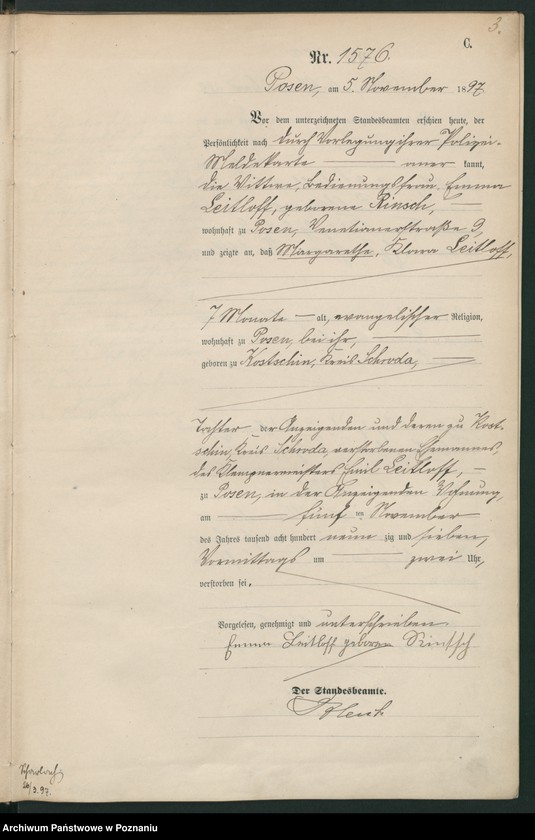 3.
C.
Nr. 1576.
Posen, am 5. November 1897
Vor dem unterzeichneten Standesbeamten erschien heute, der
Persönlichkeit nach durch Vorlegung ihrer Polizei-
Meldekarte aner kannt,
die Wittwe, Bedienungsfrau Emma
Leitloff, geborene Rinsch,
wohnhaft zu Posen, Venetianerstraße 9,
und zeigte an, daß Margarethe, Klara Leitloff,
7 Monate alt, evangelischer Religion,
wohnhaft zu Posen, bei ihr,
geboren zu Kostschin, Kreis Schroda,
Tochter der Anzeigenden und deren zu Kost-
schin, Kreis Schroda, verstorbenen Ehemannes,
des Klempnermeisters Emil Leitloff,
zu Posen, in der Anzeigenden Wohnung,
am fünf ten November
des Jahres tausend acht hundert neun zig und sieben,
Vormittags um zwei Uhr,
verstorben sei.
Vorgelesen, genehmigt und unterschrieben
Emma Leitloff geboren Rintsch
Der Standesbeamte.
Archiwum Państwowe w Poznaniu